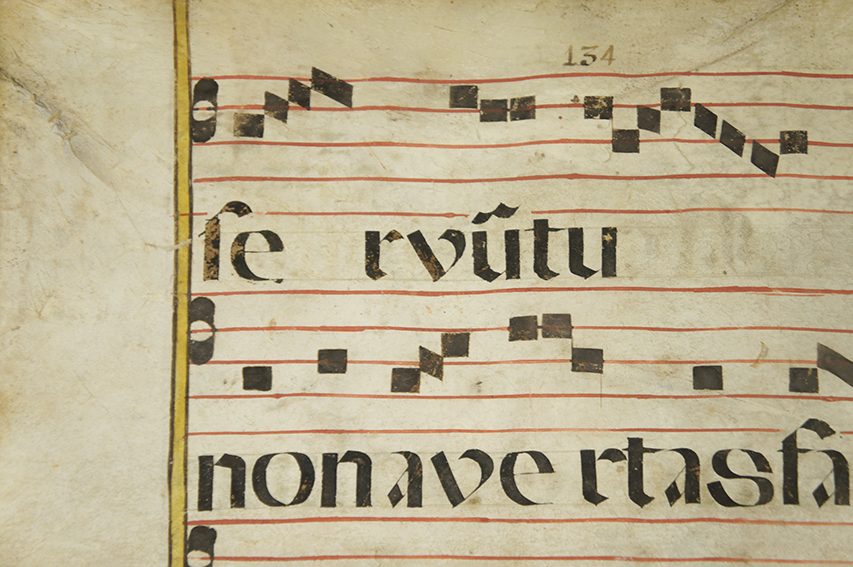 134
ſe rvũtu
nonave rtasfa